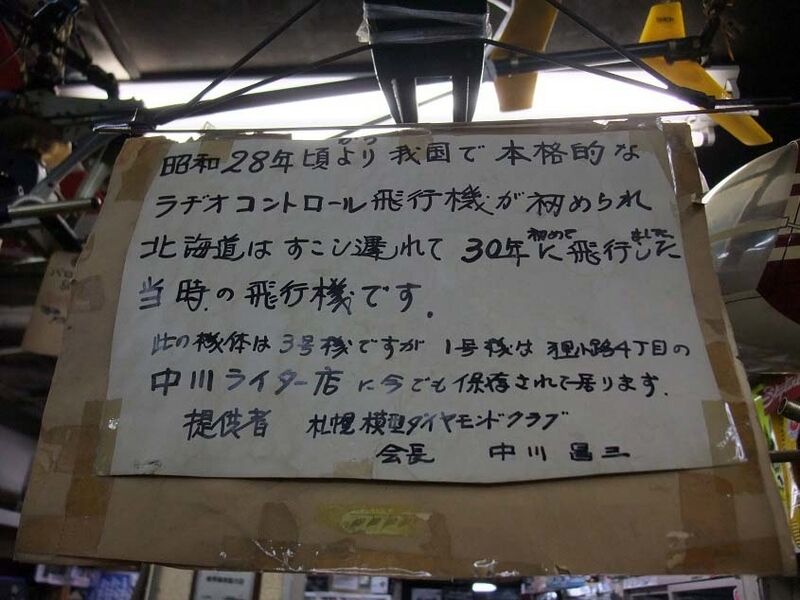 昭和28年頃より我国で本格的な
ラヂオコントロール飛行機が初められ
北海道はすこし遅れて30年に初めて飛行しました
当時の飛行機です.
此の機体は3号機ですが 1号機は狸小路4丁目の
中川ライター店に今でも保存されて居ります.
提供者 札幌模型ダイヤモンドクラブ
会長 中川昌三